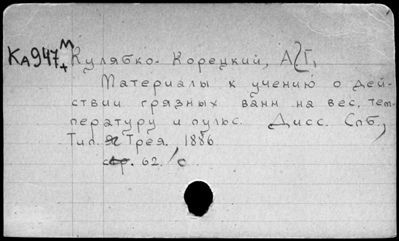 Ка947 м+ Кулябко-Корецкий, А. Г.
Материалы к учению о дей-
ствии грязных ванн на вес, тем-
пературу и пульс. Дисс. Спб,
Тип. Трея, 1886
стр. 62. / с